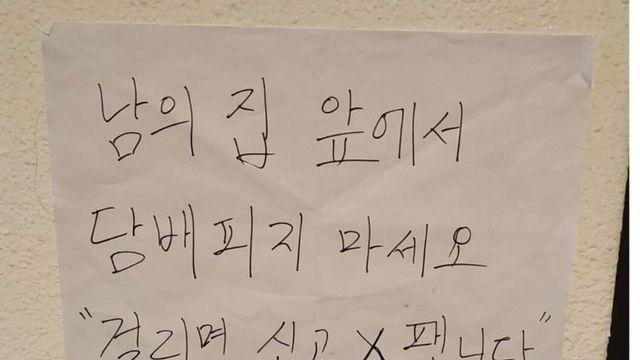 남의 집 앞에서
담배피지 마세요
"걸리면 신고 X 팬니다"